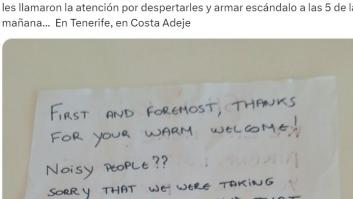 les llamaron la atención por despertarles y armar escándalo a las 5 de la
mañana... En Tenerife, en Costa Adeje
FIRST AND FOREMOST, THANKS
FOR YOUR WARM WELCOME!
NOISY PEOPLE??
SORRY THAT WE WERE TAKING